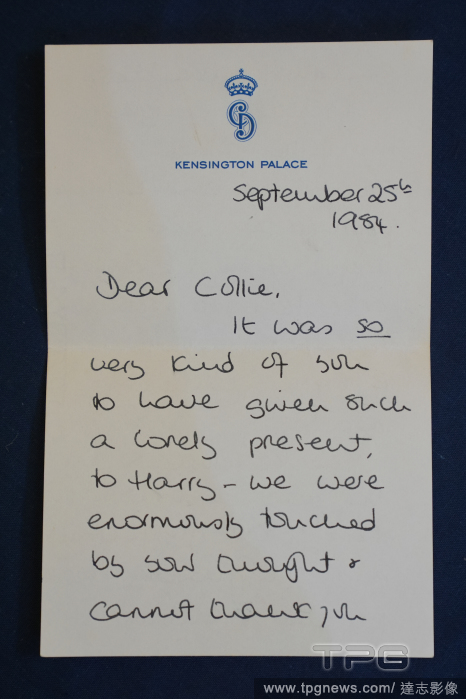 KENSINGTON PALACE
September 25th
1984.
Dear Collie,
It was so
very kind of you
to have given such
a lovely present,
to Harry - we were
enormously touched
by your thought &
cannot thank you
TPG
www.tpgnews.com/達志影像